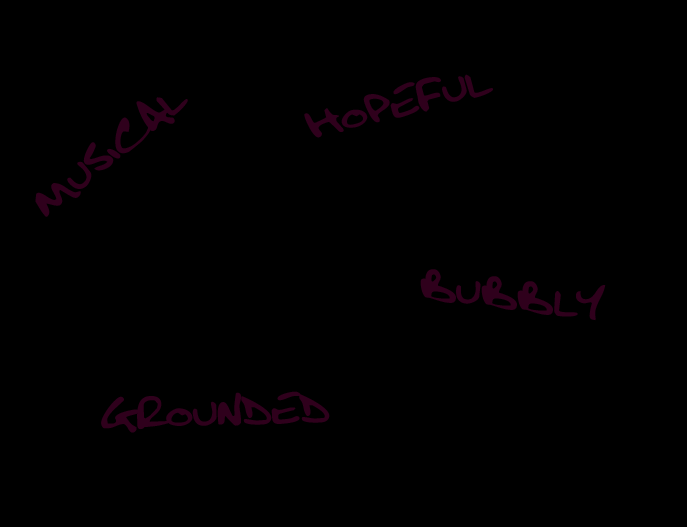 MUSICAL
HOPEFUL
BUBBLY
GROUNDED